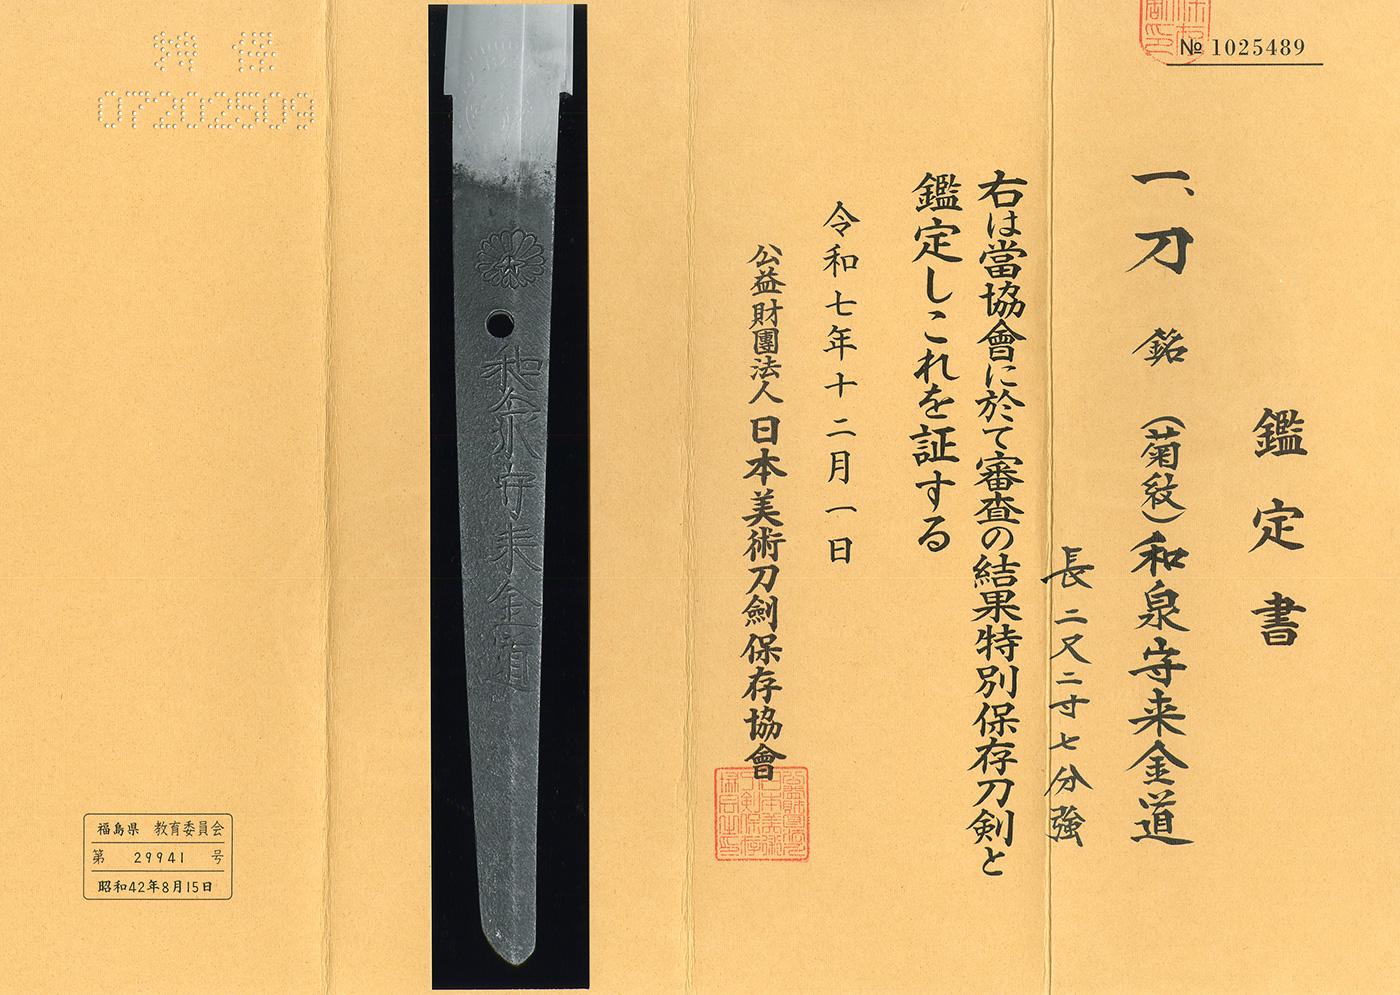 № 1025489
鑑定書
一、刀 銘 (菊紋)和泉守来金道
長二尺二寸七分強
右は當協會に於て審査の結果特別保存刀剣と
鑑定しこれを証する
令和七年十二月一日
公益財團法人 日本美術刀劍保存協會
和泉守来金道
07202509
福島県 教育委員会
第 29941 号
昭和42年8月15日